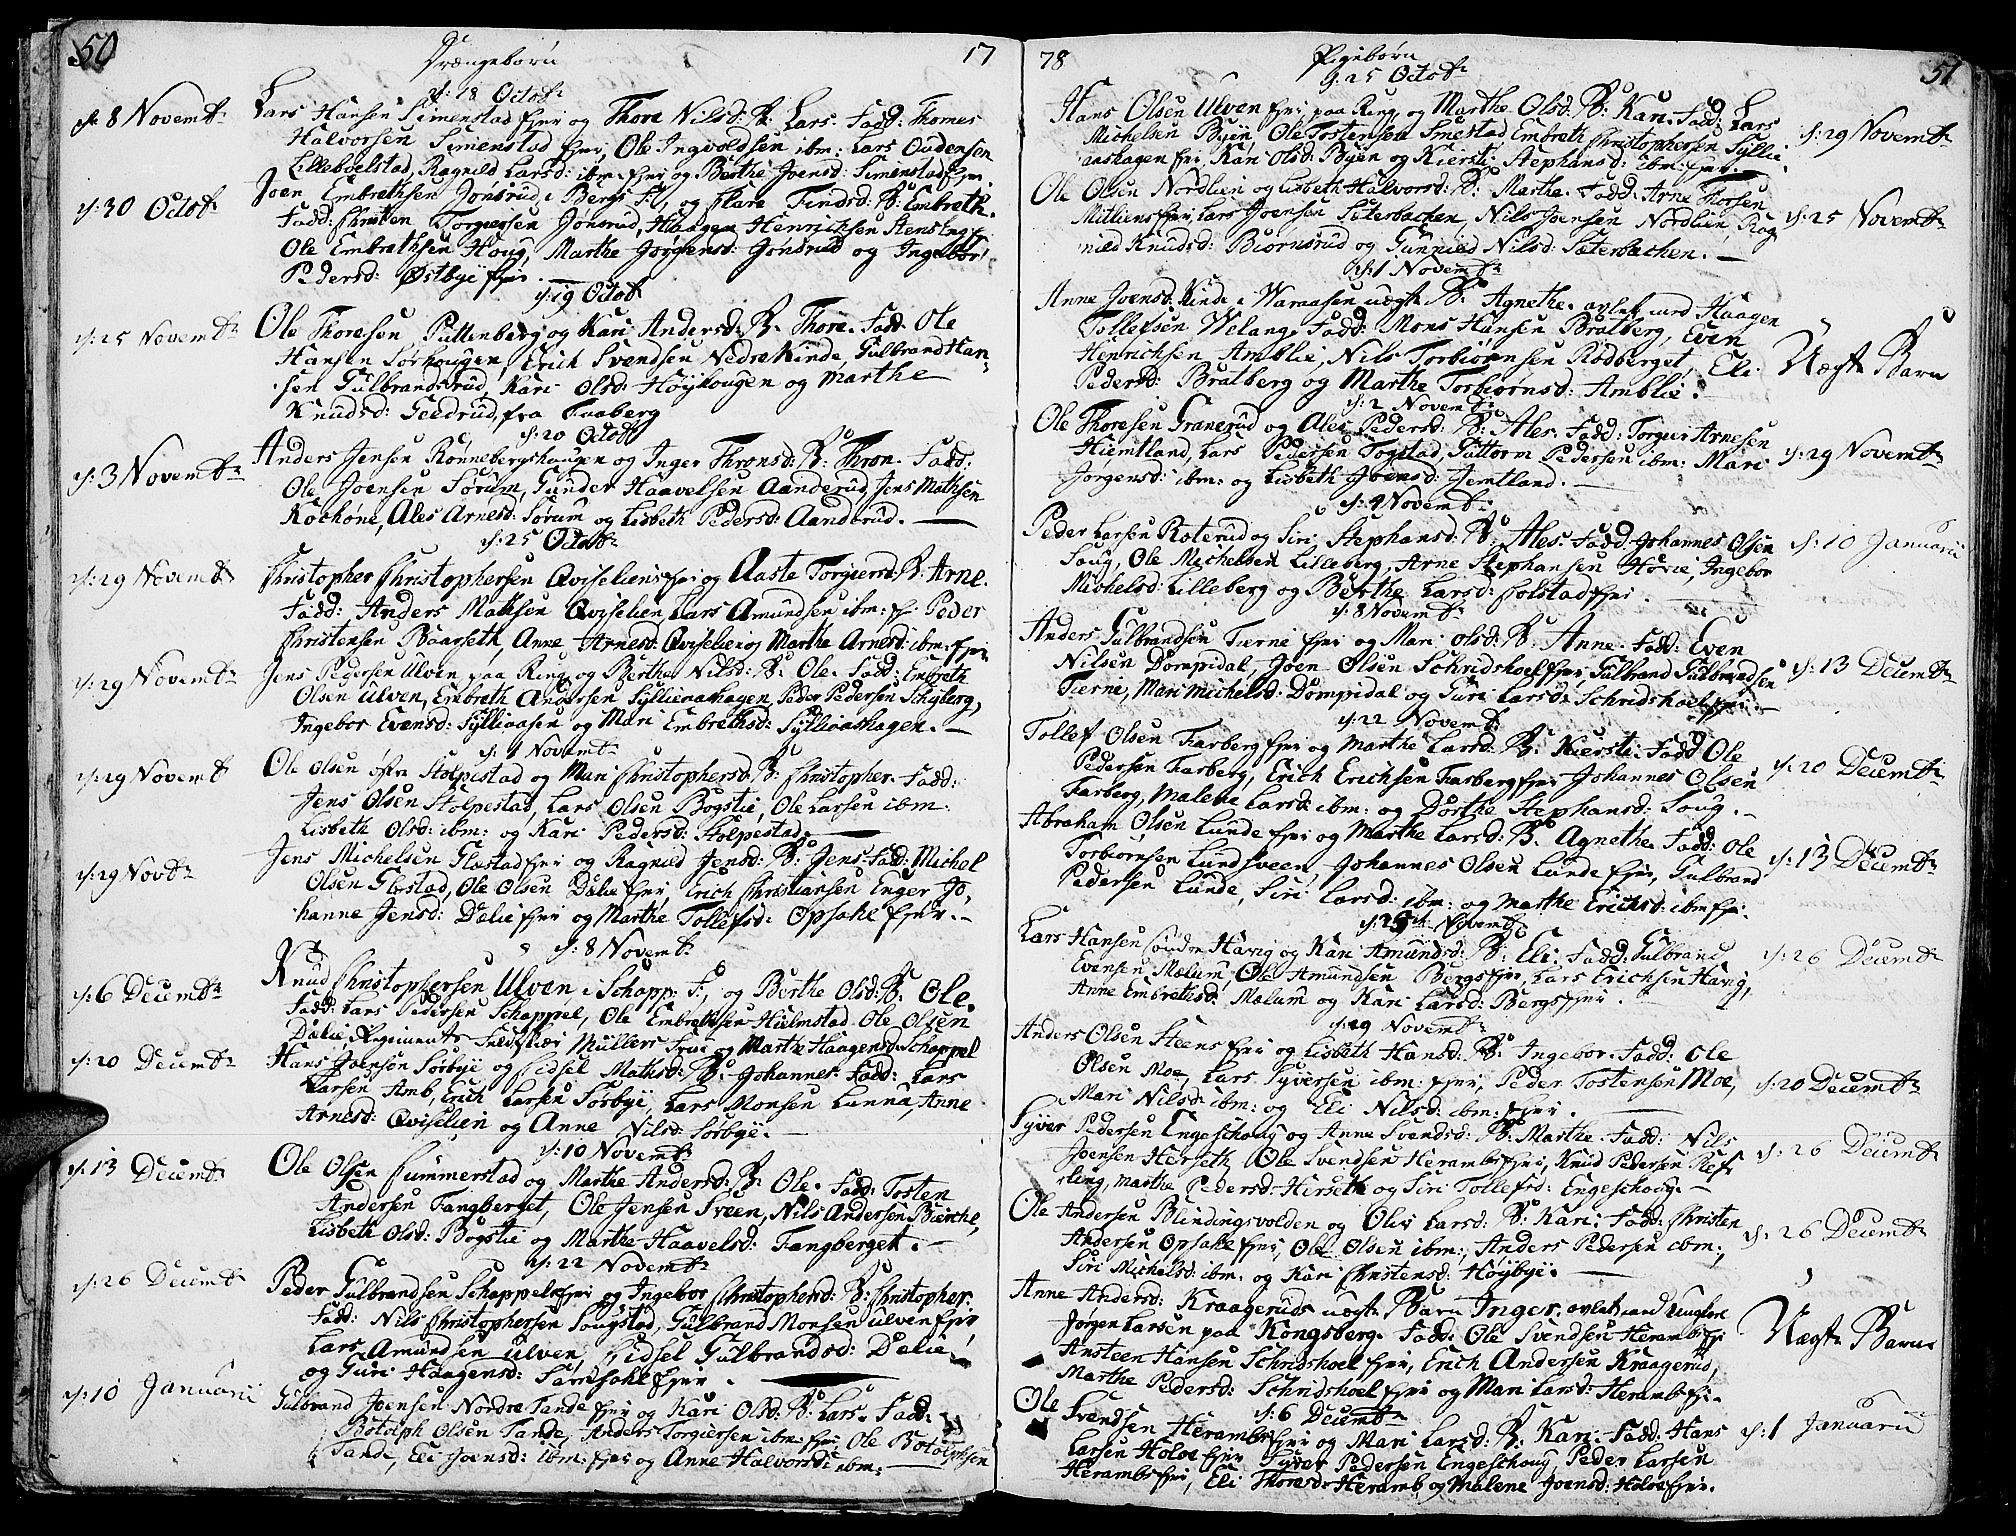 50 Drængebørn 17
d: 18 Octobr
d: 8 Novembr
Lars Hansen Simenstad Ejer og Thore Nilsd: B: Lars. Fadd: Thomes
Halvorsen Simenstad Ejer, Ole Ingvoldsen ibm: Lars Oudensen
Lilleboelstad, Ragnild Larsd: ibm: Ejer og Berthe Joensd: Simenstad Ejer
d: 30 Octobr
Joen Embrethsen Jonsrud i Bergs, og Clare Findsd: B: Embreth.
Fadd: Christen Torgersen Jønsrud, Haagen Henrichsen Stenseng
Ole Embrethsen Houg, Marthe Jørgensd: Jønsrud og Ingebor
Pedersd: Østbye Ejer.
d: 19 Octobr
d: 25 Novembr
Ole Thoresen Pullenberg og Kari Andersd: B: Thore. Fadd: Ole
Hansen Sørhougen, Erich Svendsen Nedre Kinde, Gulbrand Han-
sen Gulbrandsrud, Kari Olsd: Høyhougen og Marthe
Knudsd: Geedrud, fra Faaberg
d: 20 Octobr
d: 3 Novembr
Anders Jensen Rønnebergshaugen og Inger Thronsd: B: Thron. Fadd:
Ole Joensen Sørum, Gunder Haavelsen Aanderud, Jens Mathsen
Kochøne, Ales Arnesd: Sørum og Lisbeth Pedersd: Aanderud.
d: 25 Octobr
d: 29 Novembr
Christopher Christophersen Qviselien Ejer og Aaste Torgiersd: B: Arne.
Fadd: Anders Mathsen Qviselien, Lars Amundsen ibm: Peder
Christensen Baarseth, Anne Arnesd: Qviselien og Marthe Arnesd: ibm: Ejer
d: 29 Novembr
Jens Pedersen Ulven paa Ring og Berthe Nilsd: B: Ole. Fadd: Embreth
Olsen Ulven, Embreth Andersen Sylliaashagen, Peder Pedersen
Ingebor Evensd: Sylliaasen og Mari Embrethsd: Sylliaashagen.
d: 1 Novembr
d: 29 Novembr
Ole Olsen Stolpestad og Mari Christophersd: B: Christopher. Fadd:
Jens Olsen Stolpestad, Lars Olsen Bogstie, Ole Larsen ibm.
Lisbeth Olsd: ibm: og Kari Pedersd: Stolpestad.
d: 29 Novbr
Jens Michelsen Glestad Ejer og Ragnild Jensd: B: Jens. Fadd: Michel
Olsen Glestad, Ole Olsen Dælie Ejer, Erich Christiansen Enger Jo-
hanne Jensd: Dælie Ejer og Marthe Tollefsd: Opsahl Ejer.
d: 8 Novembr
d: 6 Decembr
Knud Christophersen Ulven i Schapp:, og Berthe Olsd: B: Ole.
Fadd: Lars Pedersen Schappel, Ole Embrethsen Hielmstad, Ole Olsen
Dælie, Regiments Feldskier Müllers Frue og Marthe Haagensd: Schappel
d: 20 Decembr
Hans Joensen Sørbye og Sidsel Mathsd: B: Johannes. Fadd: Lars
Larsen Amb, Erich Larsen Sørbye, Lars Monsen Lunna, Anne
Arnesd: Qviselien og Anne Nilsd: Sørbye.
d: 10 Novembr
d: 13 Decembr
Ole Olsen Summerstad og Marthe Andersd: B: Ole. Fadd: Tosten
Andersen Fangberget, Ole Jensen Sveen, Nils Andersen Bierche,
Lisbeth Olsd: Bogstie og Marthe Haavelsd: Fangberget.
d: 22 Novembr
d: 26 Decembr
Peder Gulbrandsen Schappel Ejer og Ingebor Christophersd: B: Christopher.
Fadd: Nils Christophersen Sougstad, Gulbrand Monsen Ulven Ejer
Lars Amundsen Ulven, Sidsel Gulbrandsd: Dælie,
og Guri Haagensd: Særsahl Ejer.
d: 10 Januarii
Gulbrand Joensen Nordre Tande Ejer og Kari Olsd: B: Lars. Fadd:
Botolph Olsen Tande, Anders Torgiersen ibm: Ejer Ole Botolphsen
Tande, Eli Joensd: ibm: Ejer og Anne Halvorsd: ibm:
78 Pigebørn 51
d: 25 Octobr
Hans Olsen Ulven Ejer paa Ring og Marthe Olsd: B: Kari. Fadd: Lars
Michelsen Byen, Ole Tostensen Smestad, Embreth Christophersen Sylli-
aashagen Ejer, Kari Olsd: Byen og Kiersti Stephansd: ibm: Ejer.
d: 29 Novembr
Ole Olsen Nordlien og Lisbeth Halvorsd: B: Marthe. Fadd: Arne Thorsen
Mitliens Ejer, Lars Joensen Sæterbachen, Nils Joensen Nordlien, Rag-
nild Knudsd: Biørnsrud og Gunnild Nilsd: Sæterbachen.
d: 25 Novembr
d: 1 Novembr
Anne Joensd: Kinde i Waraasen uægte B: Agnethe. avlet med Haagen
Tollefsen Welang, Fadd: Mons Hansen Bratberg, Even
Henrichsen Amblie, Nils Torbiørnsen Rødberget, Eli
Pedersd: Bratberg og Marthe Torbiørnsd: Amblie.
Uægte Barn
d: 2 Novembr
Ole Thoresen Granerud og Ales Pedersd: B: Ales. Fadd: Torgier Arnesen
Hiemtland, Lars Pedersen Togstad, Guttorm Pedersen ibm: Mari
Jørgensd: ibm: og Lisbeth Joensd: Jemtland.
d: 29 Novembr
d: 4 Novembr
Peder Larsen Roterud og Siri Stephansd: B: Ales. Fadd: Johannes Olsen
Soug, Ole Michelsen Lilleberg, Arne Stephansen Hovie, Ingebor
Michelsd: Lilleberg og Berthe Larsd: Colstad Ejer.
d: 10 Januarii
d: 8 Novembr
Anders Gulbrandsen Tierne Ejer og Mari Olsd: B: Anne. Fadd: Even
Nilsen Dompidal, Joen Olsen Schridshoel Ejer, Gulbrand Gulbrandsen
Tierne, Mari Michelsd: Dompidal og Guri Larsd: Schridshoel Ejer.
d: 13 Decembr
d: 22 Novembr
Tollef Olsen Farberg Ejer og Marthe Larsd: B: Kiersti. Fadd: Ole
Pedersen Farberg, Erich Erichsen Farberg Ejer Johannes Olsen
Farberg, Malene Larsd: ibm: og Dorthe Stephansd: Soug.
d: 20 Decembr
Abraham Olsen Lunde Ejer og Marthe Larsd: B: Agnethe. Fadd: Ole
Torbiørnsen Lundsveen, Johannes Olsen Lunde Ejer, Gulbrand
Pedersen Lunde, Siri Larsd: ibm: og Marthe Erichsd: ibm Ejer.
d: 13 Decembr
d: 25 Novembr
Lars Hansen søndre Havig og Kari Amundsd: B: Eli. Fadd: Gulbrand
Evensen Mælum, Ole Amundsen Bergs Ejer, Lars Erichsen Havig,
Anne Embrethsd: Mælum og Kari Larsd: Bergs Ejer.
d: 26 Decembr
d: 29 Novembr
Anders Olsen Steens Ejer og Lisbeth Hansd: B: Ingebor. Fadd: Ole
Olsen Moe, Lars Syversen ibm: Ejer, Peder Tostensen Moe,
Mari Nilsd: ibm: og Eli Nilsd: ibm: Ejer.
d: 20 Decembr
Syver Pedersen Engeschoug og Anne Svendsd: B: Marthe. Fadd: Nils
Joensen Herseth, Ole Svendsen Heramb Ejer, Knud Pedersen Kies-
ling, Marthe Pedersd: Herseth og Siri Tollefsd: Engeschoug.
d: 26 Decembr
Ole Andersen Blindingsvolden og Oliv Larsd: B: Kari. Fadd: Christen
Andersen Opsahl Ejer, Ole Olsen ibm:, Anders Pedersen ibm:,
Siri Michelsd: ibm: og Kari Christensd: Høybye.
d: 26 Decembr
Anne Andersd: Kraagerud uægte Barn Inger. avlet med Ungkarl
Jørgen Larsen paa Kongsberg. Fadd: Ole Svendsen Heramb Ejer
Ansteen Hansen Schridshoel Ejer, Erich Andersen Kraagerud,
Marthe Pedersd: Schridshoel Ejer og Mari Larsd: Heramb Ejer.
Uægte Barn
d: 6 Decembr
Ole Svendsen Heramb Ejer og Mari Larsd: B: Kari. Fadd: Hans
Larsen Holoe Ejer Syver Pedersen Engeschoug, Peder Larsen
Heramb Ejer, Eli Thoresd: Heramb og Malene Joensd: Holoe Ejer.
d: 1 Januarii